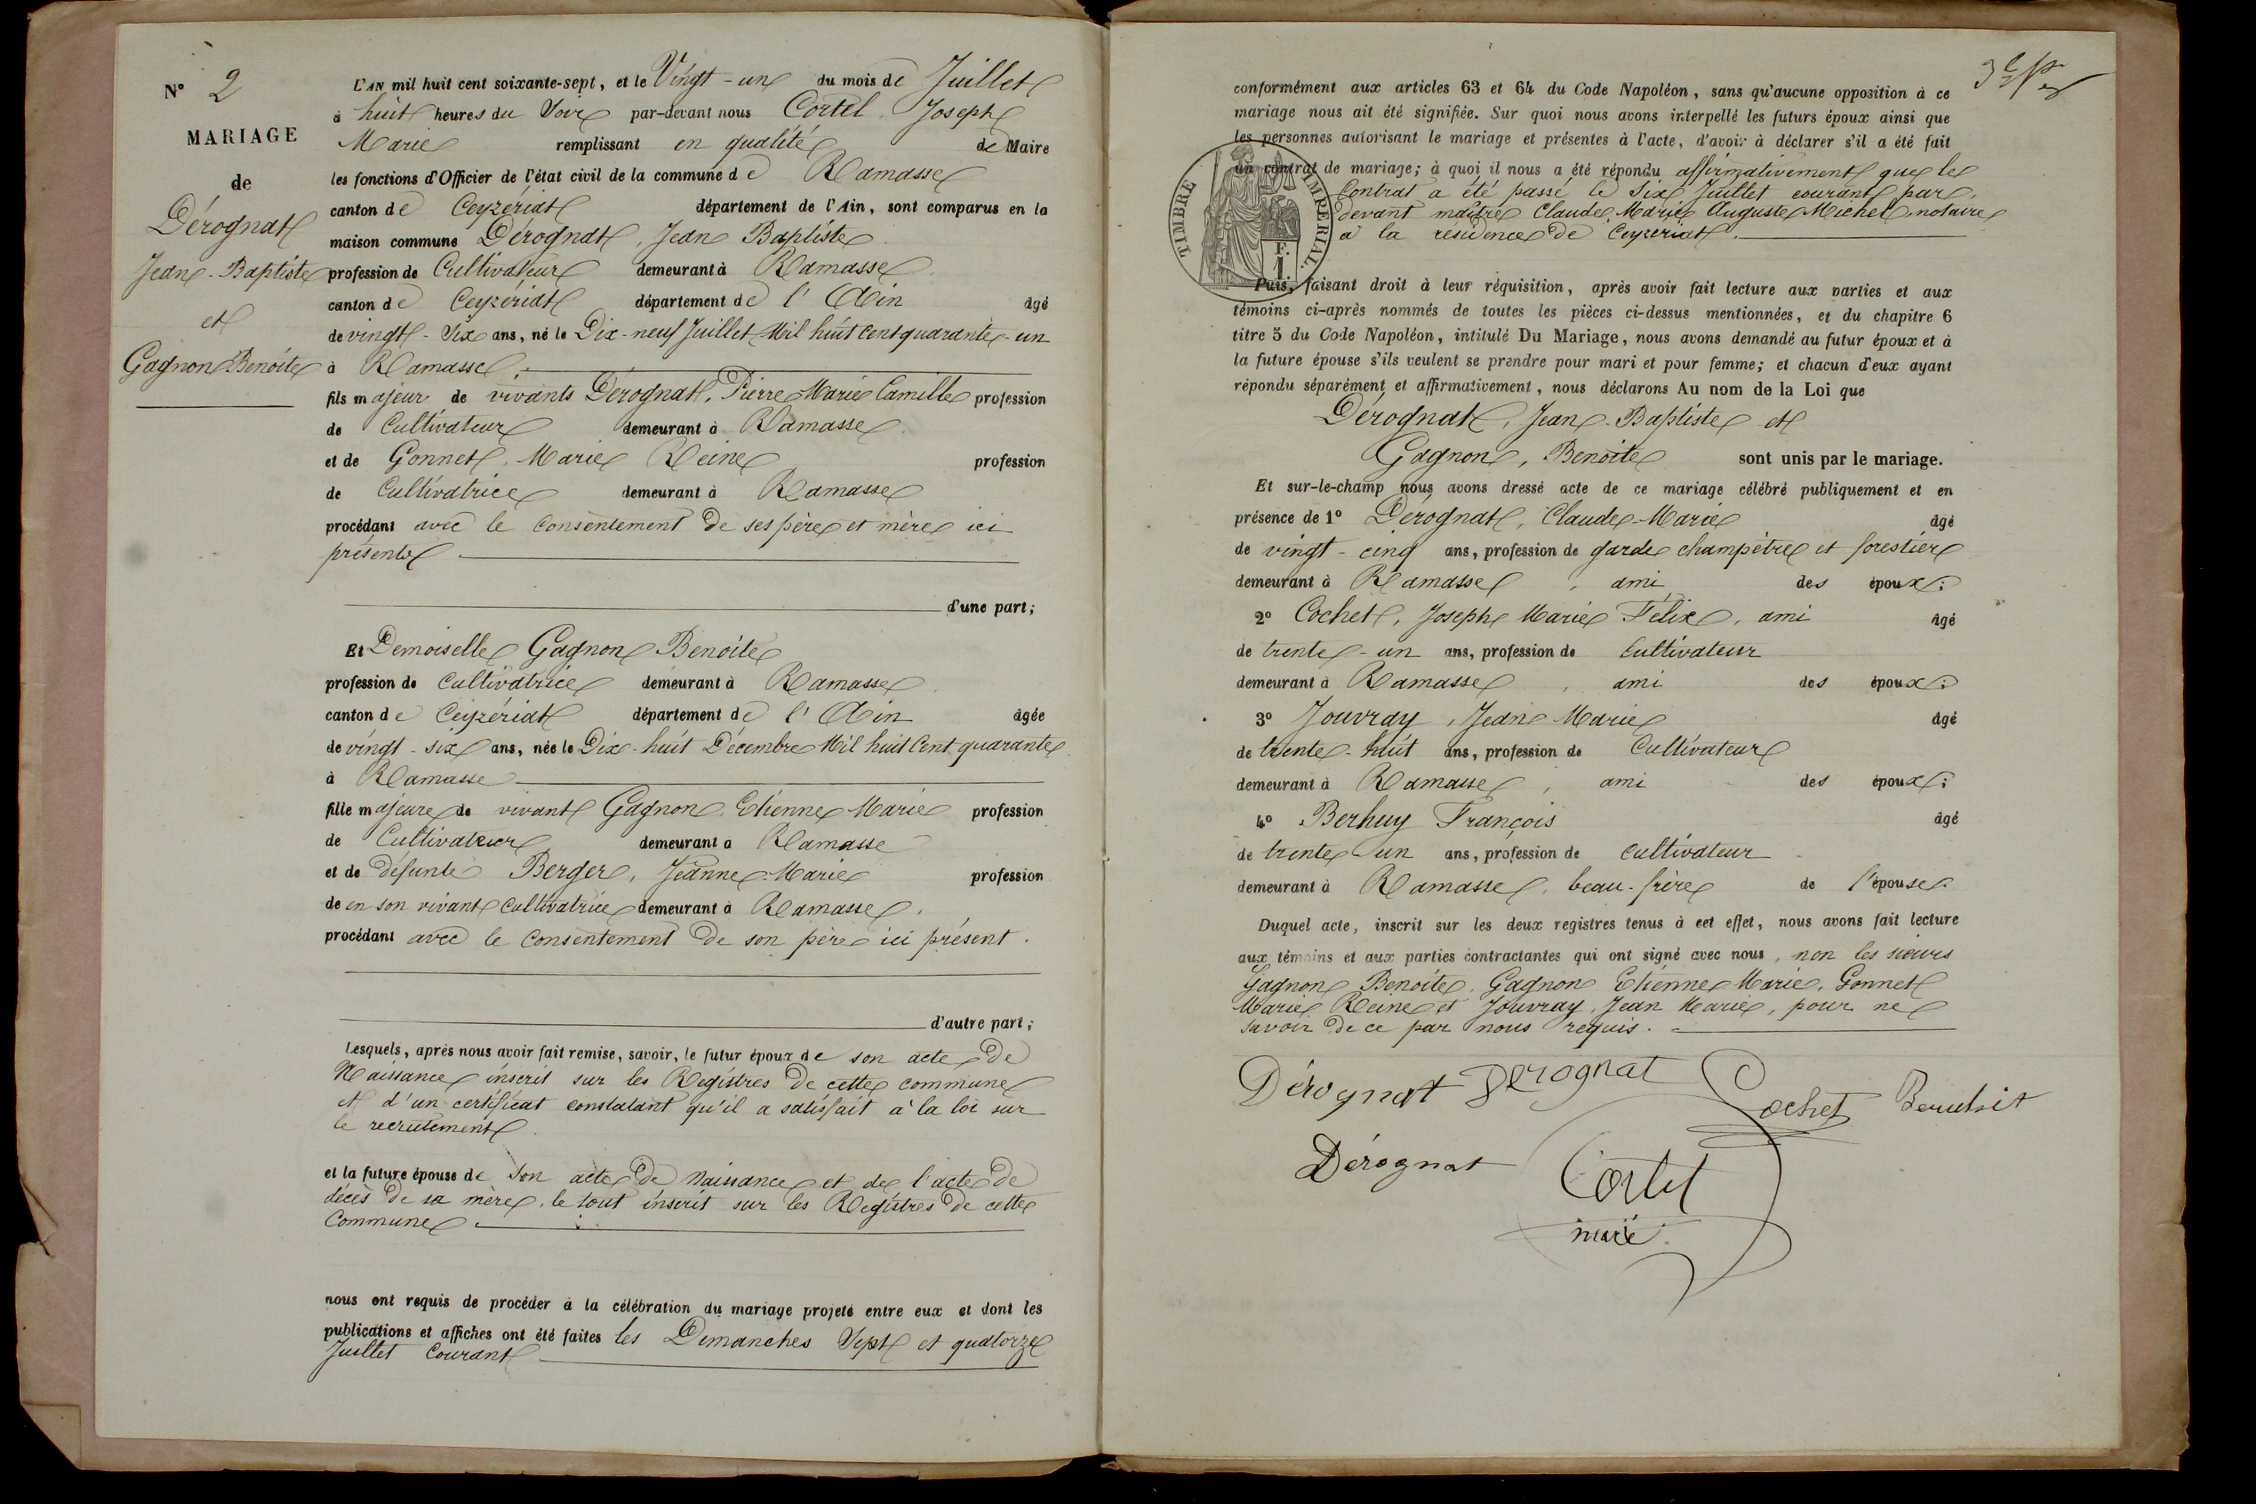 N° 2
MARIAGE
de
Dérognat
Jean-Baptiste
et
Gagnon Benoite
L'AN mil huit cent soixante-sept, et le Vingt-un du mois de Juillet
à huit heures du Soir par-devant nous Cortel Joseph
Marie remplissant en qualité de Maire
les fonctions d'Officier de l'état civil de la commune de Ramasse
canton de Ceyzériat département de l'Ain, sont comparus en la
maison commune Dérognat, Jean Baptiste
profession de Cultivateur demeurant à Ramasse
canton de Ceyzériat département de l'Ain âgé
de vingt-six ans, né le Dix-neuf Juillet Mil huit cent quarante-un
à Ramasse
fils majeur de vivants Dérognat, Pierre Marie Camille profession
de Cultivateur demeurant à Ramasse
et de Gonnet, Marie Reine profession
de Cultivatrice demeurant à Ramasse
procédant avec le consentement de ses père et mère ici
présents
d'une part;
Et Demoiselle Gagnon Benoite
profession de Cultivatrice demeurant à Ramasse
canton de Ceyzériat département de l'Ain âgée
de vingt-six ans, née le Dix-huit Décembre Mil huit Cent quarante
à Ramasse
fille majeure de vivant Gagnon Etienne Marie profession
de Cultivateur demeurant à Ramasse
et de défunte Berger, Jeanne-Marie profession
de en son vivant cultivatrice demeurant à Ramasse.
procédant avec le consentement de son père ici présent.
d'autre part;
Lesquels, après nous avoir fait remise, savoir, le futur époux de son acte de
Naissance inscrit sur les Registres de cette commune
et d'un certificat constatant qu'il a satisfait à la loi sur
le recrutement.
et la future épouse de son acte de Naissance et de l'acte de
décès de sa mère, le tout inscrit sur les Registres de cette
Commune
nous ont requis de procéder à la célébration du mariage projeté entre eux et dont les
publications et affiches ont été faites les Dimanches Sept et quatorze
Juillet Courant
conformément aux articles 63 et 64 du Code Napoléon, sans qu'aucune opposition à ce
mariage nous ait été signifiée. Sur quoi nous avons interpellé les futurs époux ainsi que
les personnes autorisant le mariage et présentes à l'acte, d'avoir à déclarer s'il a été fait
un contrat de mariage; à quoi il nous a été répondu affirmativement que le
Contrat a été passé le Six Juillet courant par
devant maître Claude Marie Auguste Michel, notaire
à la résidence de Ceyzériat.
TIMBRE IMPERIAL
F.
1.
Puis, faisant droit à leur réquisition, après avoir fait lecture aux parties et aux
témoins ci-après nommés de toutes les pièces ci-dessus mentionnées, et du chapitre 6
titre 5 du Code Napoléon, intitulé Du Mariage, nous avons demandé au futur époux et à
la future épouse s'ils veulent se prendre pour mari et pour femme; et chacun d'eux ayant
répondu séparément et affirmativement, nous déclarons Au nom de la Loi que
Dérognat, Jean-Baptiste et
Gagnon, Benoite sont unis par le mariage.
Et sur-le-champ nous avons dressé acte de ce mariage célébré publiquement et en
présence de 1° Dérognat, Claude-Marie âgé
de vingt-cinq ans, profession de garde champêtre et forestier
demeurant à Ramasse, ami des époux;
2° Cochet, Joseph Marie Félix, ami âgé
de trente-un ans, profession de Cultivateur
demeurant à Ramasse, ami des époux;
3° Jouvray, Jean Marie âgé
de trente-huit ans, profession de Cultivateur
demeurant à Ramasse, ami des époux;
4° Berhuy François âgé
de trente-un ans, profession de Cultivateur
demeurant à Ramasse, beau-frère de l'épouse.
Duquel acte, inscrit sur les deux registres tenus à cet effet, nous avons fait lecture
aux témoins et aux parties contractantes qui ont signé avec nous, non les sieurs
Gagnon Benoite, Gagnon Etienne Marie, Gonnet
Marie Reine et Jouvray, Jean Marie, pour ne
savoir de ce par nous requis.
Dérognat Derognat Cochet
Dérognat Cortel
maire